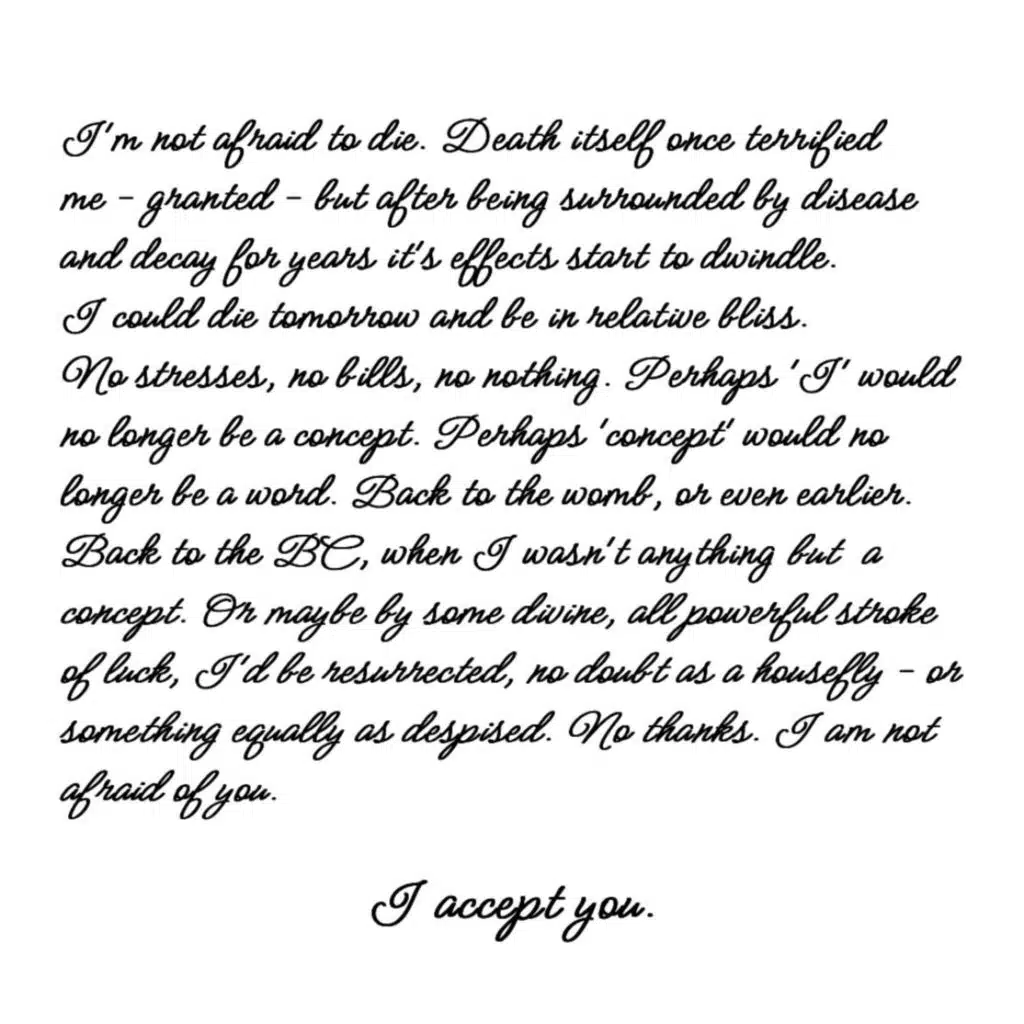 I'm not afraid to die. Death itself once terrified
me - granted - but after being surrounded by disease
and decay for years it's effects start to dwindle.
I could die tomorrow and be in relative bliss.
No stresses, no bills, no nothing. Perhaps 'I' would
no longer be a concept. Perhaps 'concept' would no
longer be a word. Back to the womb, or even earlier.
Back to the BC, when I wasn't anything but a
concept. Or maybe by some divine, all powerful stroke
of luck, I'd be resurrected, no doubt as a housefly - or
something equally as despised. No thanks. I am not
afraid of you.
I accept you.